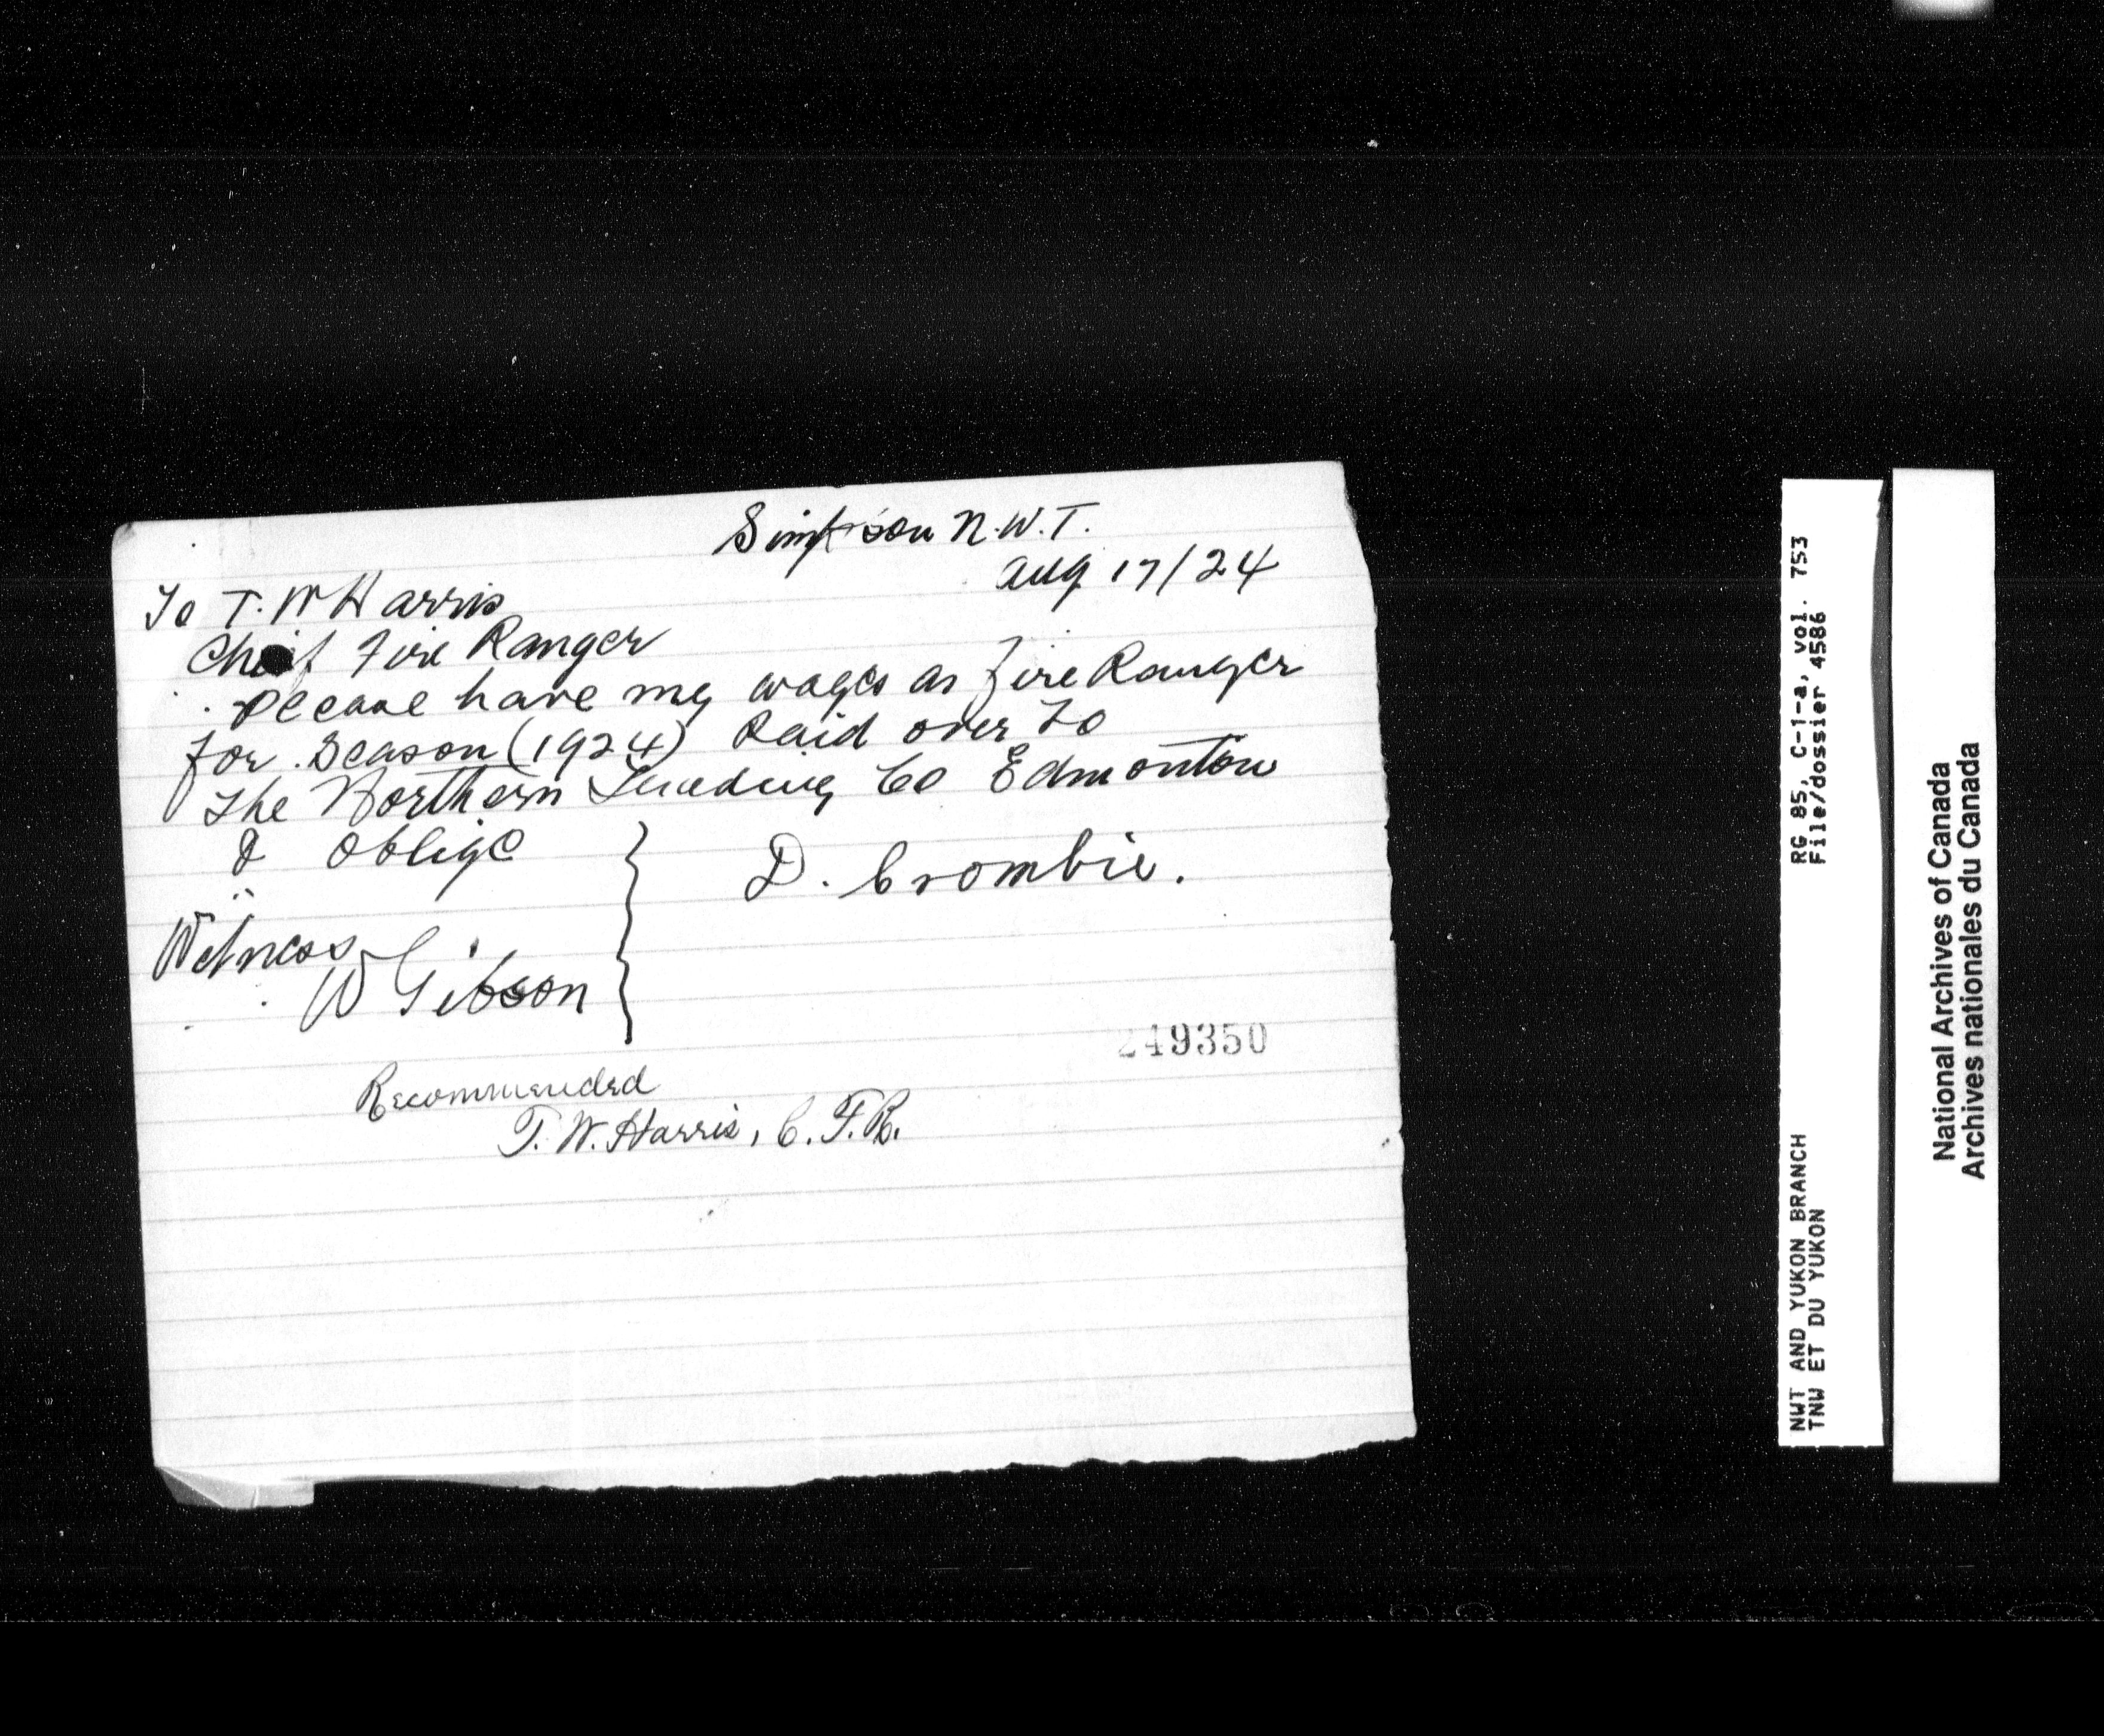 Simpson N.W.T.
Aug 17/24
To T. W Harris
Cheif Fire Ranger
Please have my wages as Fire Ranger
for Season (1924) Paid over to
The Northern Trading Co Edmonton
& Oblige
D. Crombie.
Witness
W Gibson
249350
Recommended
T. W. Harris, C. F. R.
RG 85, C-1-a, vol. 753
File/dossier 4586
NWT AND YUKON BRANCH
TNW ET DU YUKON
National Archives of Canada
Archives nationales du Canada